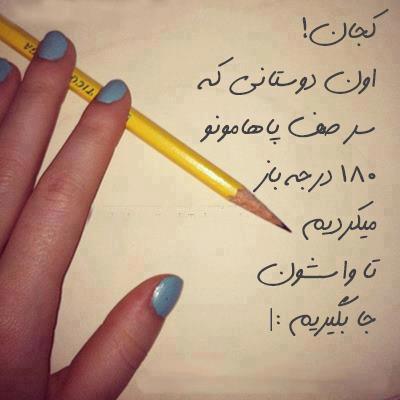 کجان!
اون دوستانی که
سر صف پاهامونو
۱۸۰ درجه باز
میکردیم
تا واسشون
جا بگیریم :|